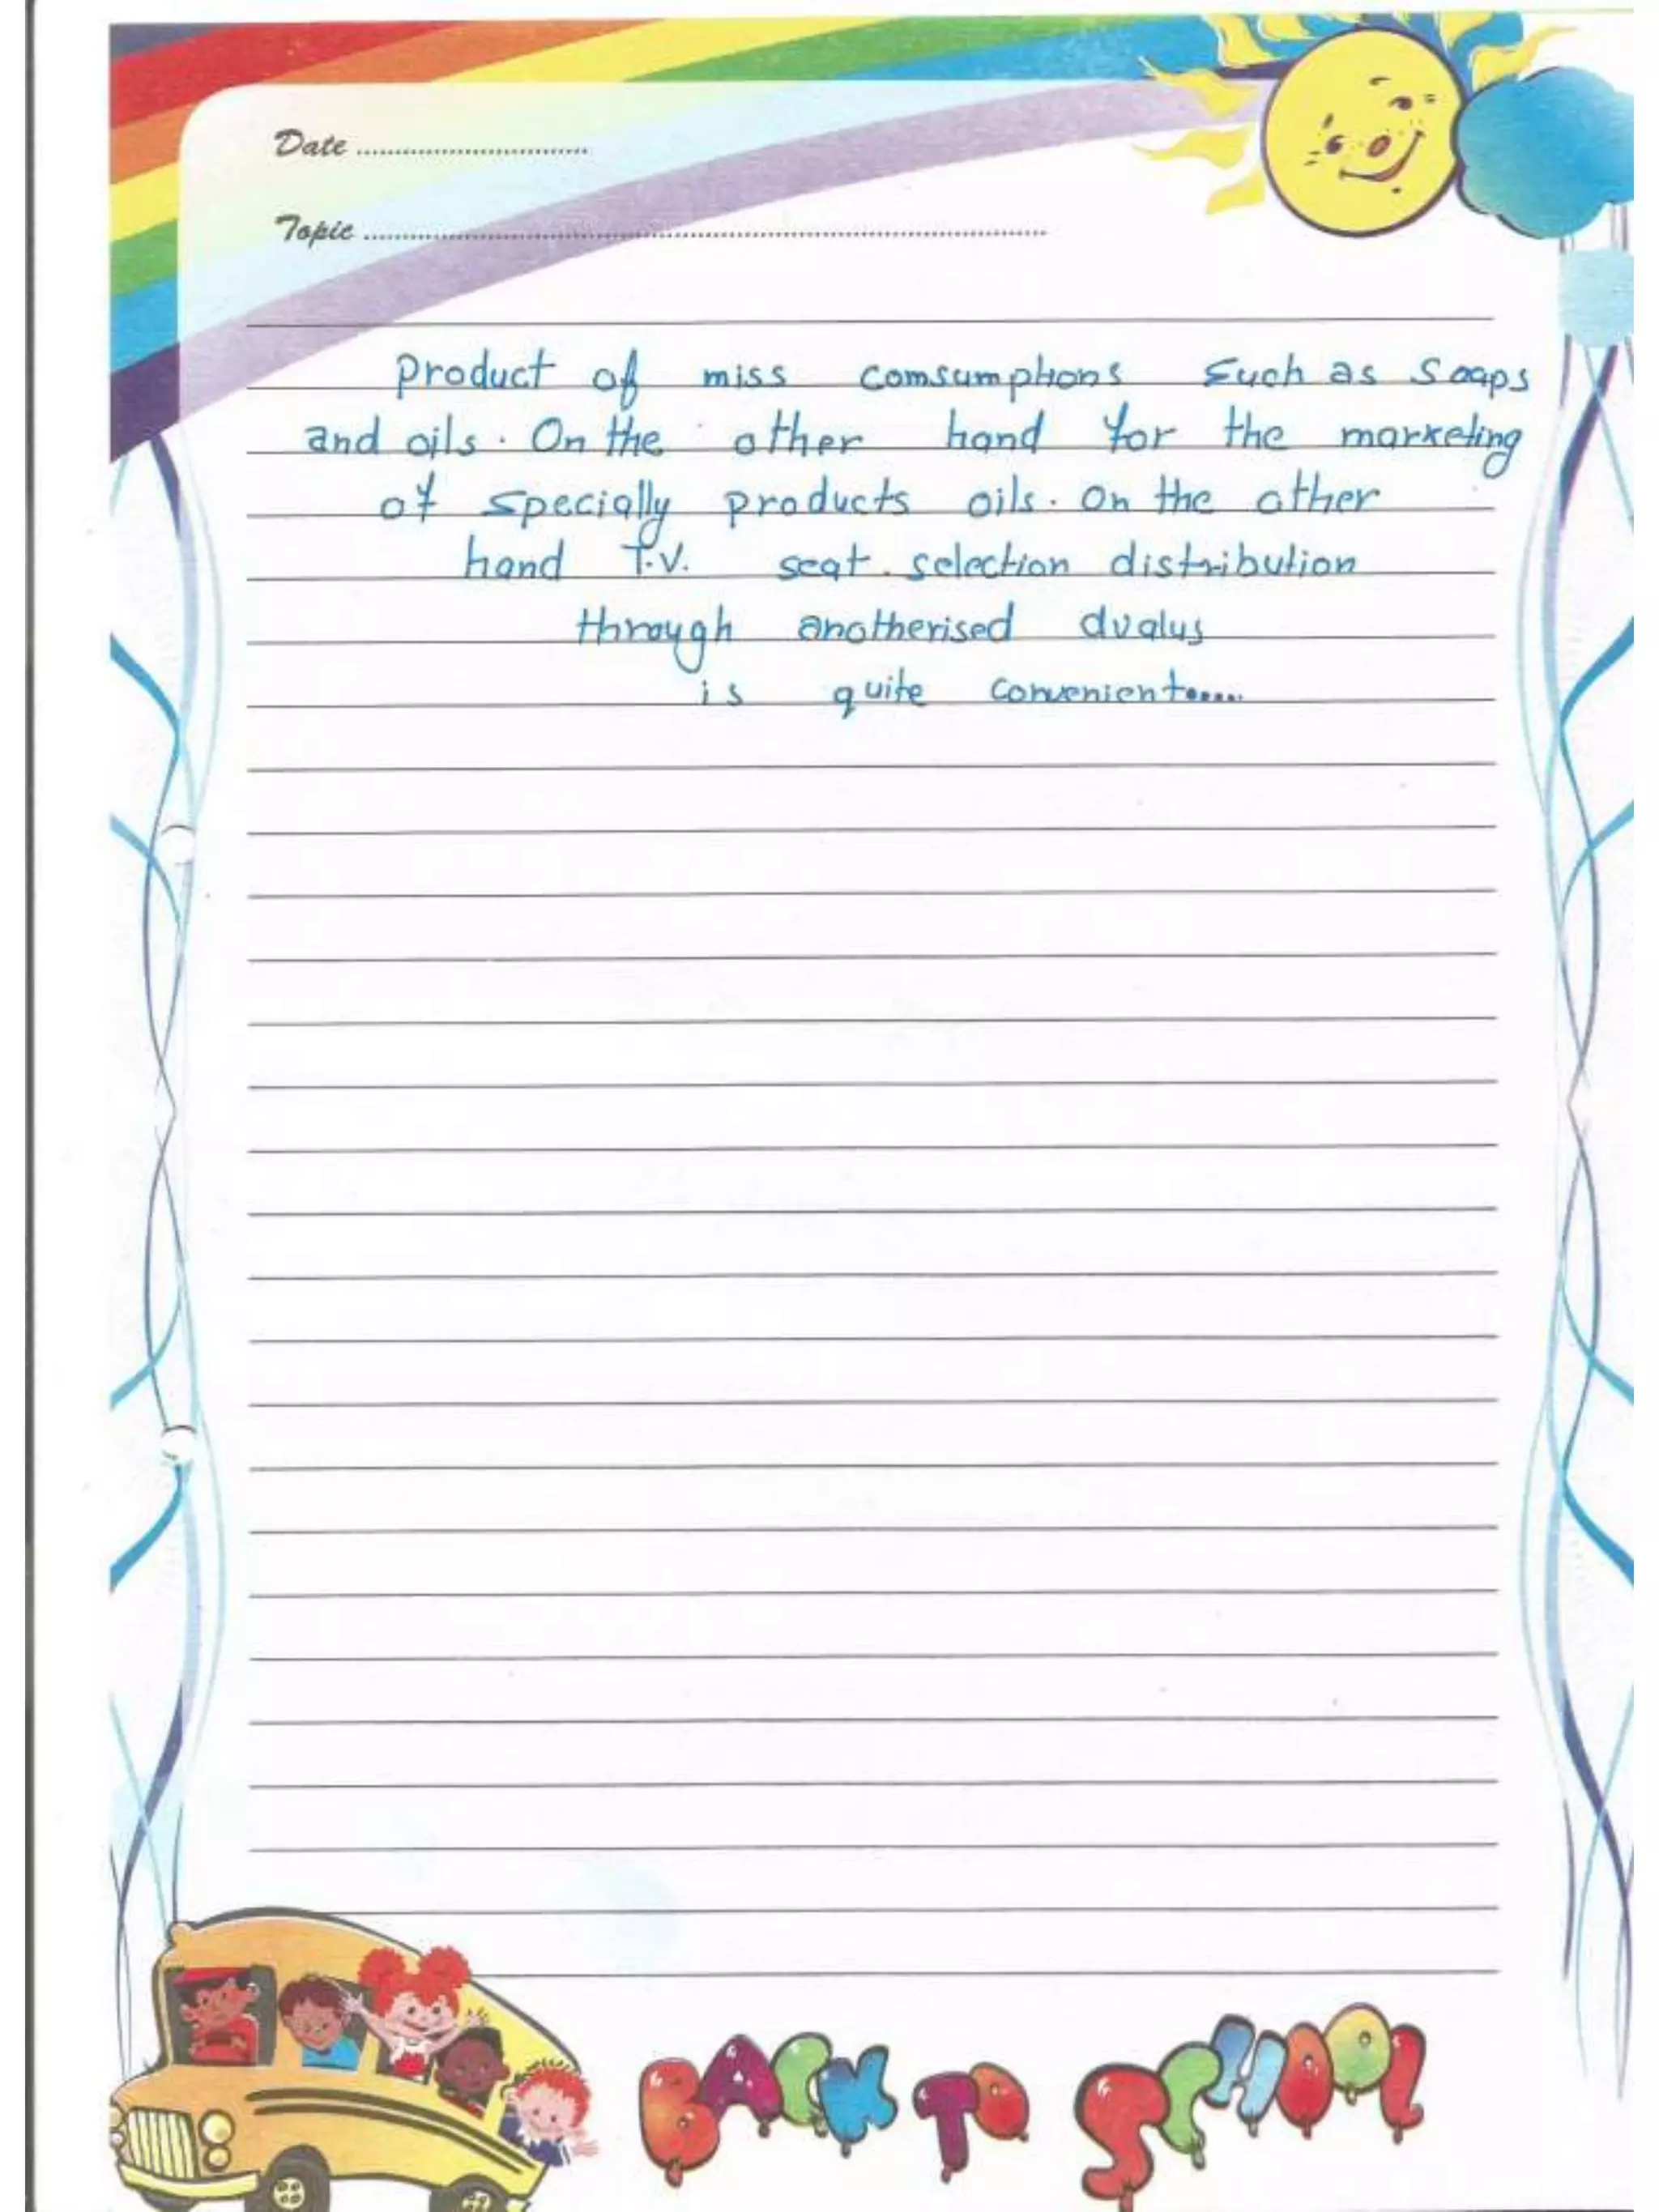 Date ..............................
Topic ..............................
Product of miss comsumptions such as soaps
and oils. On the other hand for the marketing
of specially products oils. On the other
hand T.V. seat. selection distribution
through anotherised dvalus
is quite convenient.....
BACK TO SCHOOL